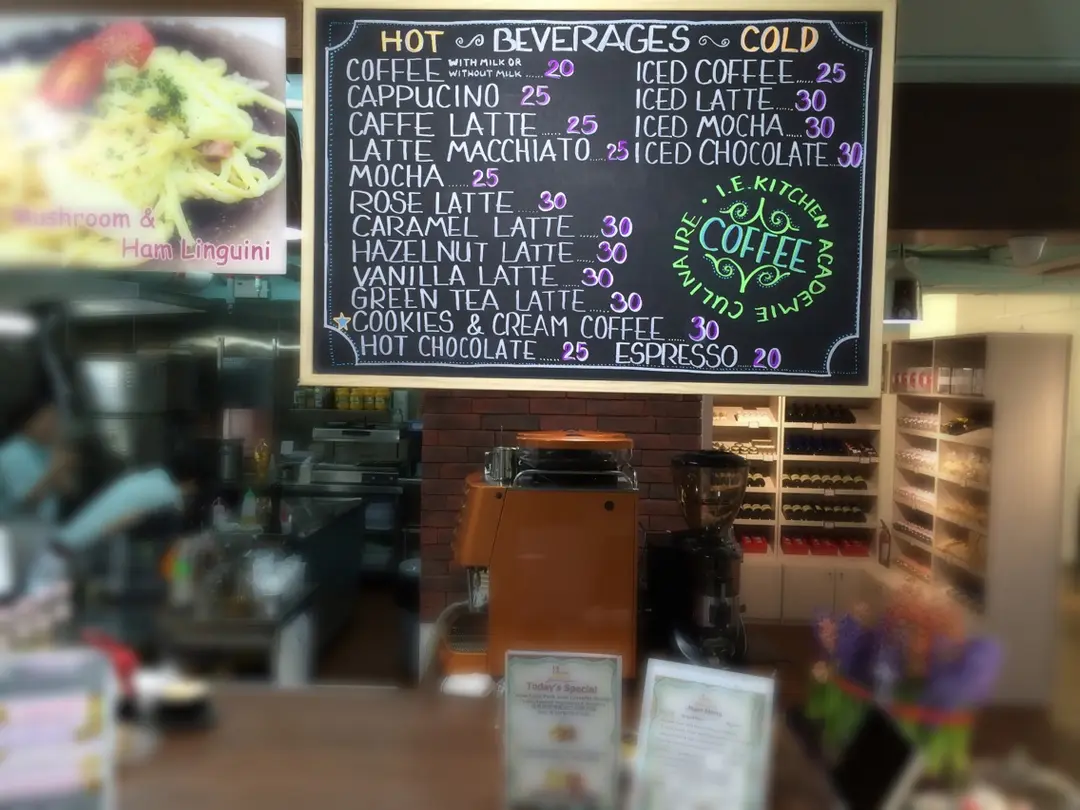 HOT BEVERAGES COLD
COFFEE WITH MILK OR WITHOUT MILK ..... 20
CAPPUCINO 25
CAFFE LATTE ..... 25
LATTE MACCHIATO ... 25
MOCHA .... 25
ROSE LATTE .... 30
CARAMEL LATTE .... 30
HAZELNUT LATTE ..... 30
VANILLA LATTE .... 30
GREEN TEA LATTE .... 30
COOKIES & CREAM COFFEE .... 30
HOT CHOCOLATE .... 25
ESPRESSO 20
ICED COFFEE .... 25
ICED LATTE .... 30
ICED MOCHA .... 30
ICED CHOCOLATE .. 30
I.E. KITCHEN ACADEMIE CULINAIRE
COFFEE
Mushroom &
Ham Linguini
Today's Special